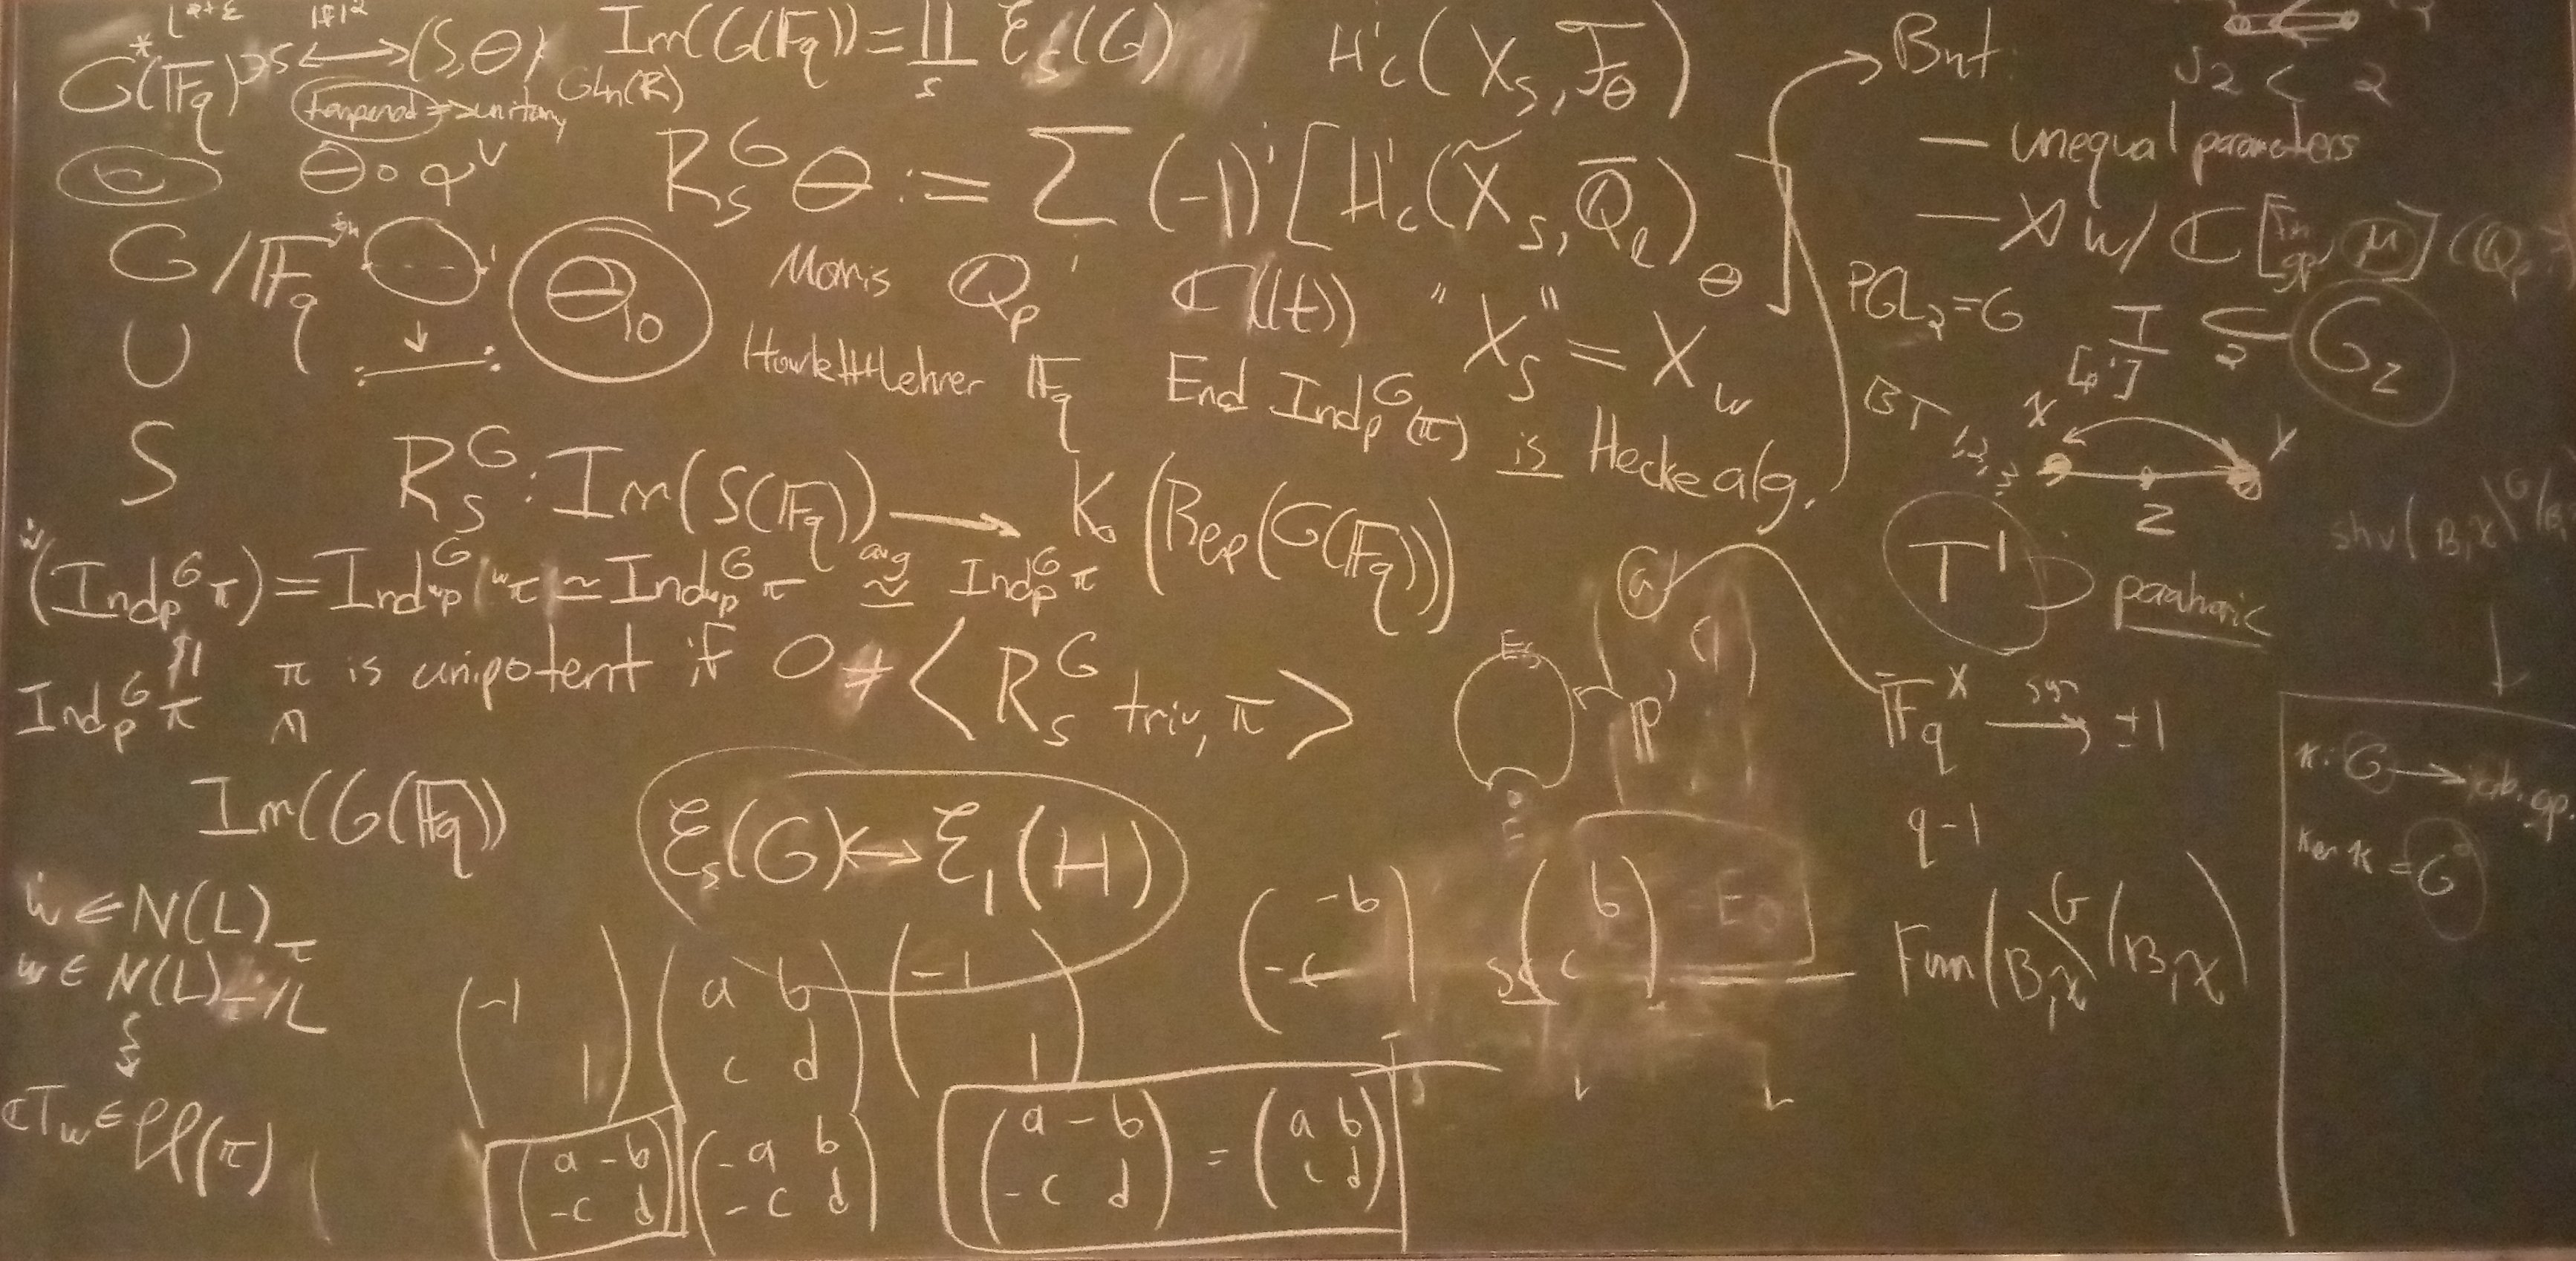 G*(𝔽q) ∋ s ⟷ (S,θ)
|f|²
tempered ⇒ unitary GLn(ℝ)
Irr(G(𝔽q)) = ∐_s ℰ_s(G)
H^i_c(X_S, ℱ_θ)
θ∘φ^∨
R_S^G θ := Σ (-1)^i [H^i_c(X̃_S, Q̄_ℓ)_θ]
G/𝔽q
∪
S
Θ_10
Morris Q_p ℂ((t))
Howlett+Lehrer 𝔽q
"X_S" = X_w
End Ind_P^G(π) is Hecke alg.
R_S^G : Irr(S(𝔽q)) ⟶ K(Rep(G(𝔽q)))
ẇ(Ind_P^G π) = Ind_{wP}^G (^wπ) ≃ Ind_{wP}^G π ≃^{avg} Ind_P^G π
Ind_P^G π
π is unipotent if 0 ≠ < R_S^G triv, π >
Irr(G(𝔽q))
ℰ_s(G) ↔ ℰ_1(H)
ẇ ∈ N(L)_π
w ∈ N(L)_π/L
ℂT_w ∈ ℋ(π)
(-1 1) (a b c d) (-1 1)
(a -b -c d) (-a b -c d)
(a -b -c d) = (a b c d)
(-b -c) (b c)
But:
— unequal parameters
— X w/ ℂ[fin gp, μ]
PGL_2 = G
I ⊂_2 G_2
BT
X X
2
T' parahoric
a
𝔽q^× ⟶^{sgn} ±1
q-1
Fun(B,χ\G/B,χ)
shv(B,χ\G/B,
κ: G ⟶ ab. gp.
ker κ = G°